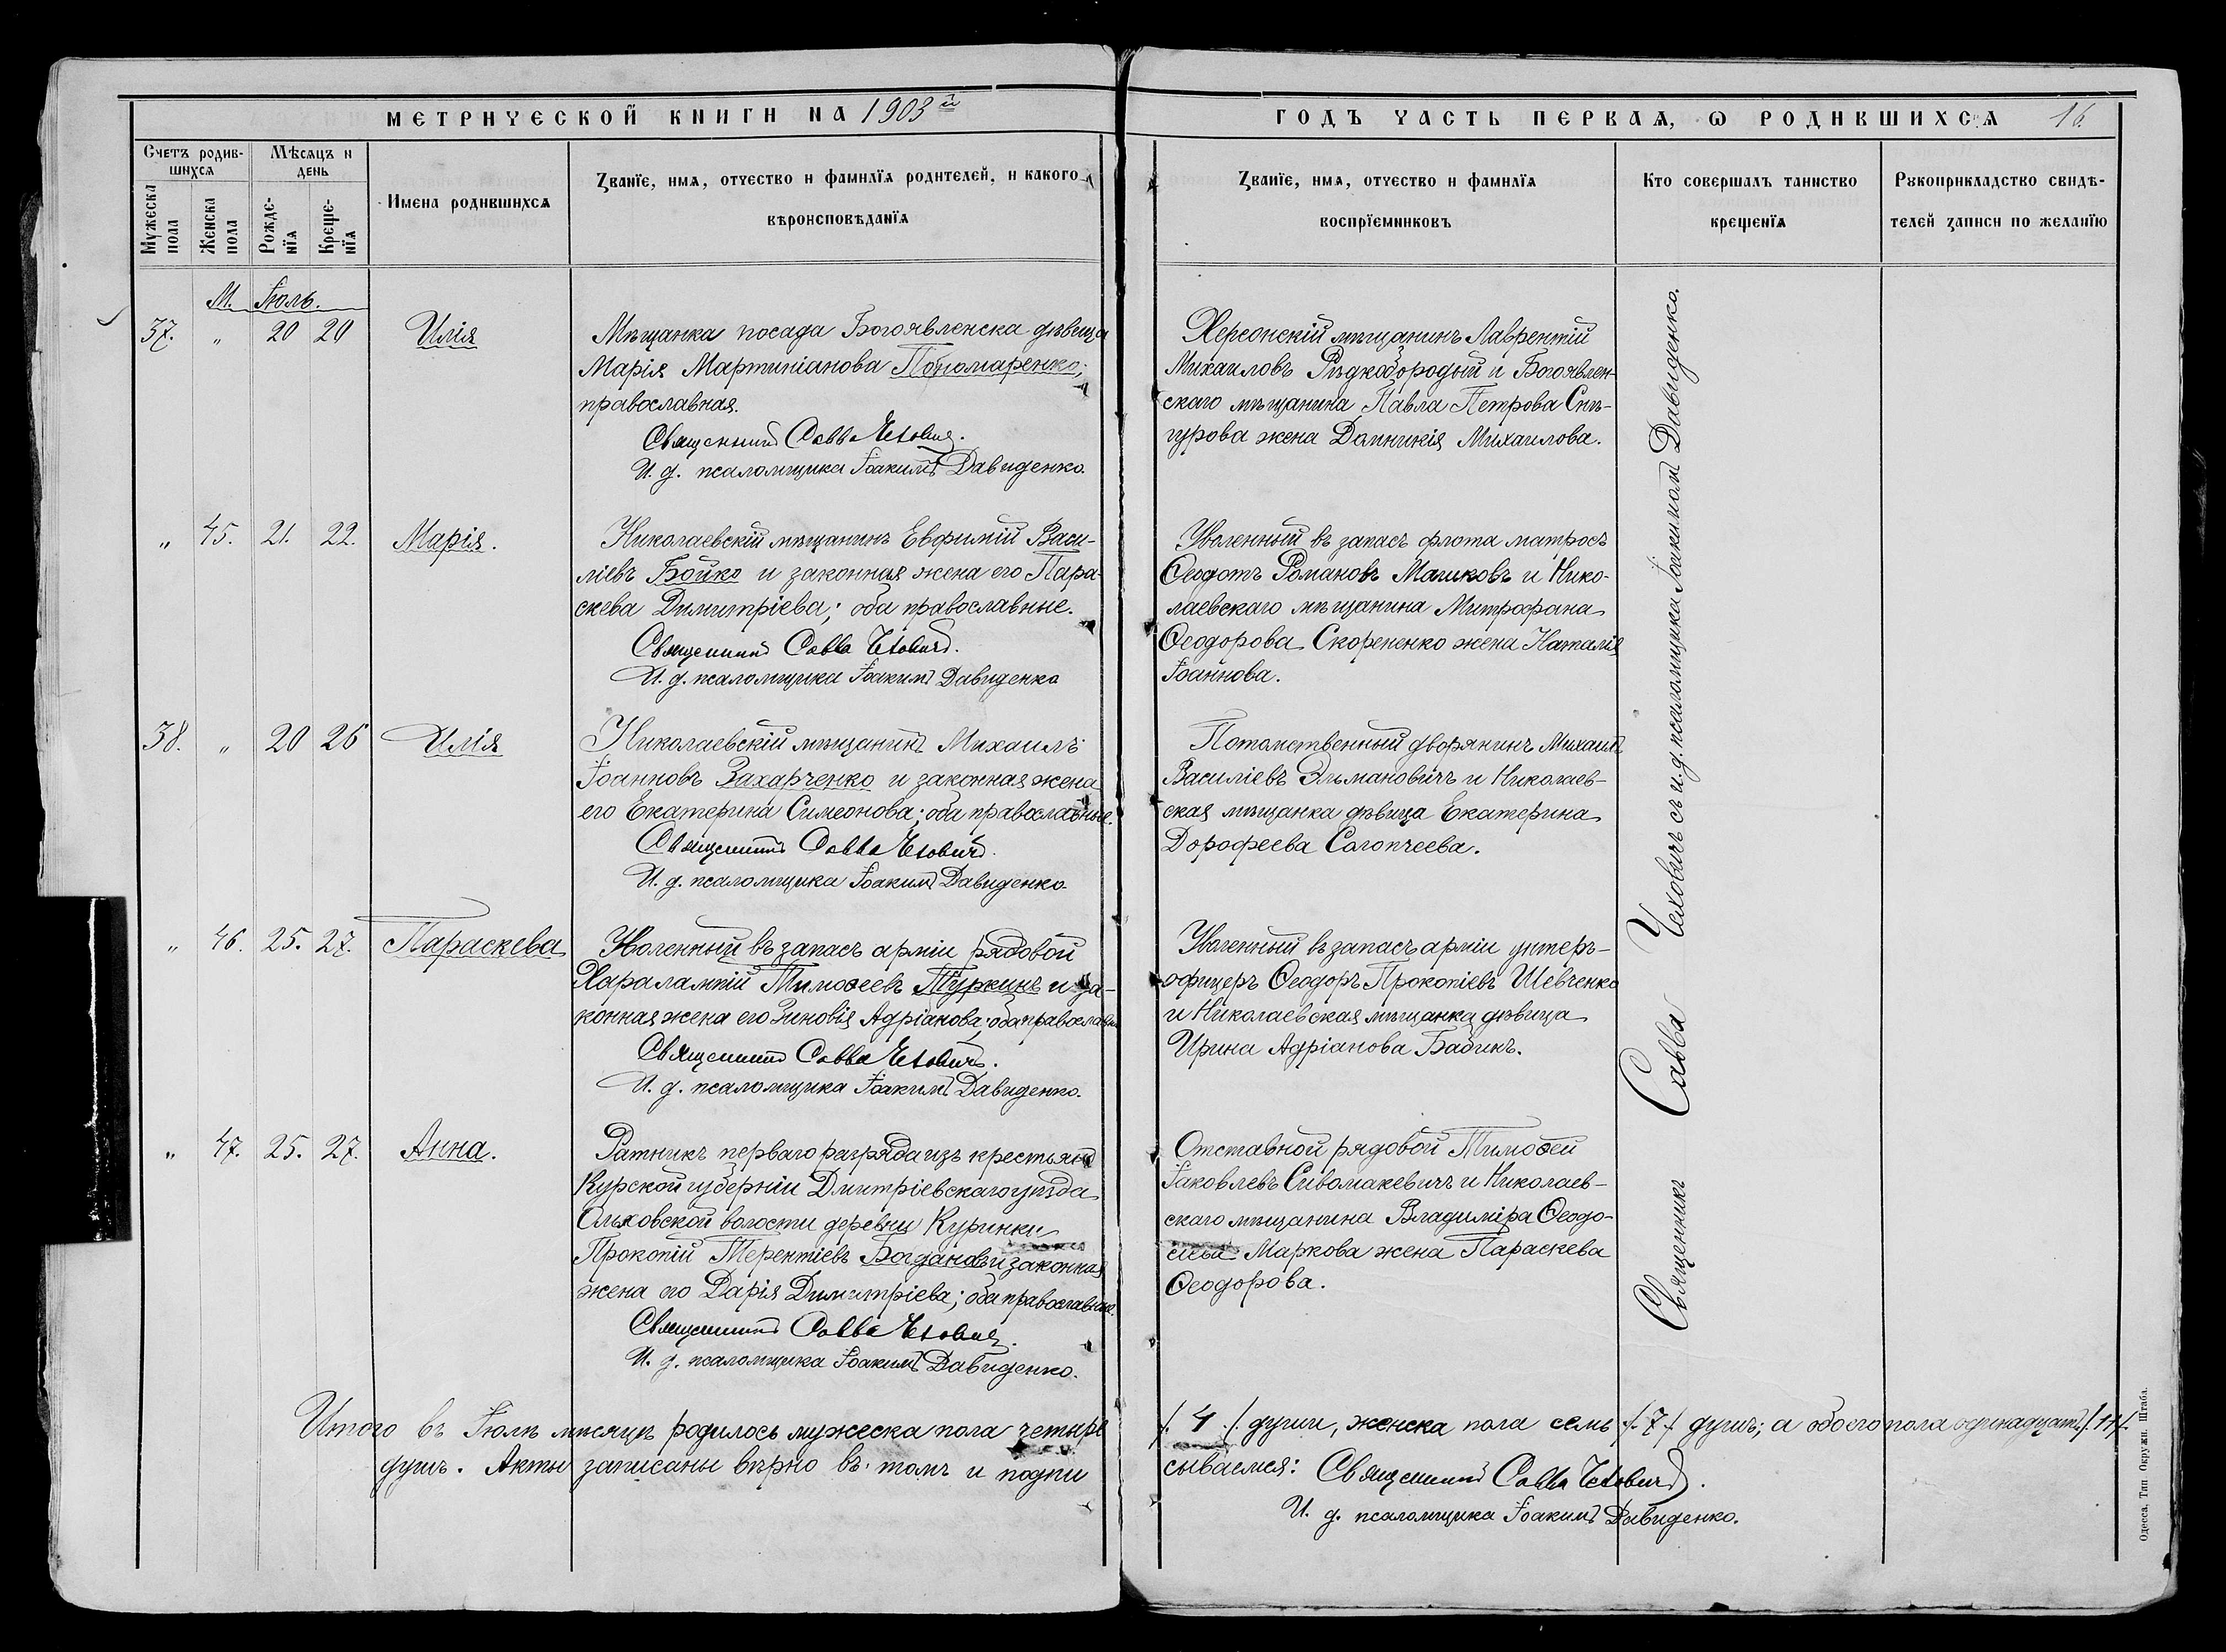 МЕТРИЧЕСКОЙ КНИГИ НА 1903й
ГОДЪ ЧАСТЬ ПЕРВАЯ, Ѡ РОДИВШИХСЯ 16.
Счетъ родив-
шихся
Мѣсяцъ и
день
Мужеска
пола
Женска
пола
Рожде-
нїя
Креще-
нїя
Имена родившихся
Званїе, имя, отчество и фамилїя родителей, и какого
вѣроисповѣданїя
Званїе, имя, отчество и фамилїя
воспрїемниковъ
Кто совершалъ таинство
крещенїя
Рукоприкладство свидѣ-
телей записи по желанїю
М. Іюль.
37. „ 20 20 Илія
Мѣщанка посада Богоявленска дѣвица
Марія Мартиніанова Пономаренко;
православная.
Священникъ Савва Чеховичъ.
И. д. псаломщика Іоакимъ Давиденко.
Херсонскій мѣщанинъ Лаврентій
Михаиловъ Рѣдкобородый и Богоявлен-
скаго мѣщанина Павла Петрова Снѣ-
гурова жена Домникія Михаилова.
„ 45. 21. 22. Марія.
Николаевскій мѣщанинъ Евфимій Васи-
ліевъ Бойко и законная жена его Пара-
скева Димитріева; оба православные.
Священникъ Савва Чеховичъ.
И. д. псаломщика Іоакимъ Давиденко
Уволенный въ запасъ флота матросъ
Ѳеодотъ Романовъ Машковъ и Нико-
лаевскаго мѣщанина Митрофана
Ѳеодорова Скорененко жена Наталія
Іоаннова.
38. „ 20 26 Илія
Николаевскій мѣщанинъ Михаилъ
Іоанновъ Захарченко и законная жена
его Екатерина Симеонова; оба православные.
Священникъ Савва Чеховичъ.
И. д. псаломщика Іоакимъ Давиденко
Потомственный дворянинъ Михаилъ
Василіевъ Эльмановичъ и Николаев-
ская мѣщанка дѣвица Екатерина
Дорофеева Салопчеева.
„ 46. 25. 27. Параскева
Уволенный въ запасъ арміи рядовой
Харалампій Тимоѳеевъ Туркинъ и за-
конная жена его Зиновія Адріанова; оба православн
Священникъ Савва Чеховичъ.
И. д. псаломщика Іоакимъ Давиденко.
Уволенный въ запасъ арміи унтеръ-
офицеръ Ѳеодоръ Прокопіевъ Шевченко
и Николаевская мѣщанка дѣвица
Ирина Адріанова Бабинъ.
„ 47. 25. 27. Анна.
Ратникъ перваго разряда изъ крестьянъ
Курской губерніи Дмитріевскаго уѣзда
Ольховской волости деревни Куринки
Прокопій Терентіевъ Богдановъ и законная
жена его Дарія Димитріева; оба православные.
Священникъ Савва Чеховичъ.
И. д. псаломщика Іоакимъ Давиденко.
Отставной рядовой Тимоѳей
Іаковлевъ Сивомакевичъ и Николаев-
скаго мѣщанина Владиміра Ѳеодо-
Маркова жена Параскева
Ѳеодорова.
Священникъ Савва Чеховичъ съ и. д. псаломщика Іоакимомъ Давиденко.
Итого въ Іюлѣ мѣсяцѣ родилось мужеска пола четыре /. 4 /. души, женска пола семь /. 7 /. душъ; а обоего пола одинадцать /. 11 /.
душъ. Акты записаны вѣрно въ томъ и подпи
сываемся: Священникъ Савва Чеховичъ.
И. д. псаломщика Іоакимъ Давиденко.
Одесса. Тип. Окружн. Штаба.